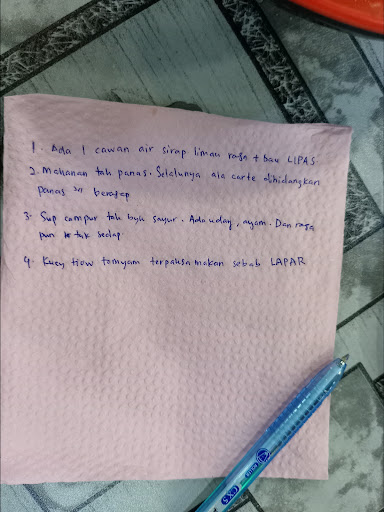 1. Ada 1 cawan air sirap limau rasa + bau LIPAS
2. Makanan tak panas. Selalunya ala carte dihidangkan
panas "n berasap
3. Sup campur tak byk sayur. Ada udang, ayam. Dan rasa
pun tak sedap.
4. Kuey tiow tomyam terpaksa makan sebab LAPAR
CX5